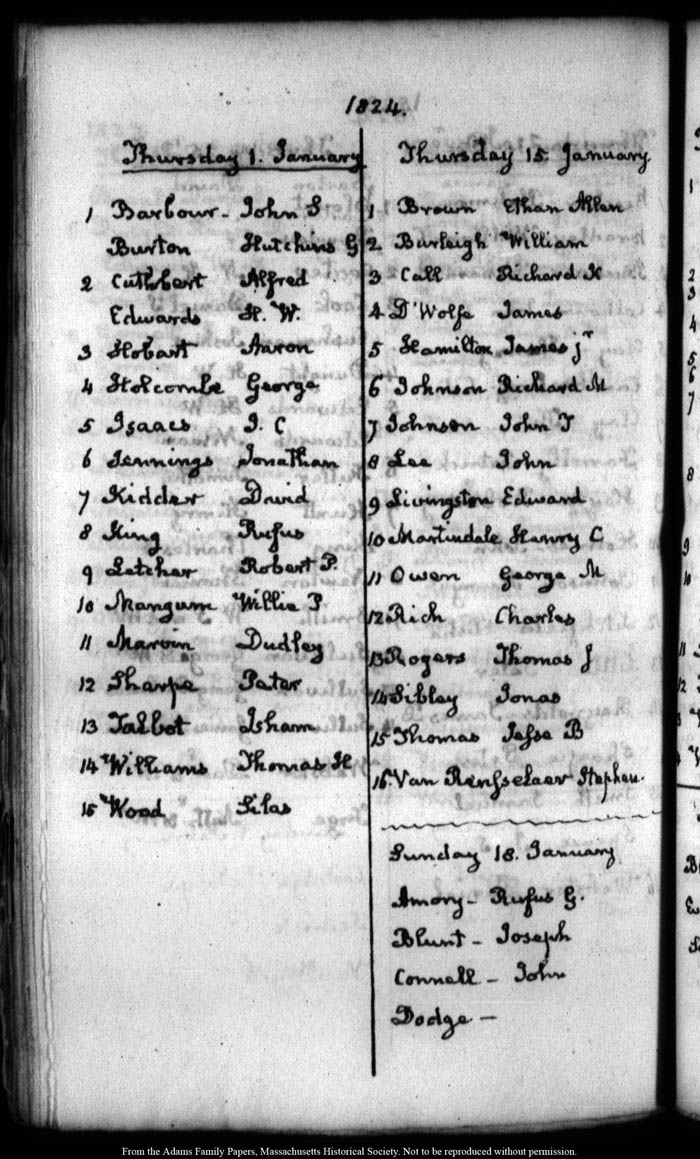 1824.
Thursday 1. January
1 Barbour - John S
Burton Hutchins G
2 Cuthbert Alfred
Edwards H. W.
3 Hobart Aaron
4 Holcombe George
5 Isaacs J. C
6 Jennings Jonathan
7 Kidder David
8 King Rufus
9 Letcher Robert P.
10 Mangum Willie P
11 Marvin Dudley
12 Sharpe Peter
13 Talbot Isham
14 Williams Thomas H
15 Wood Silas
Thursday 15. January
1 Brown Ethan Allen
2 Burleigh William
3 Call Richard K
4 D'Wolfe James
5 Hamilton James Jr
6 Johnson Richard M
7 Johnson John T
8 Lee John
9 Livingston Edward
10 Martindale Henry C
11 Owen George M
12 Rich Charles
13 Rogers Thomas J
14 Sibley Jonas
15 Thomas Jesse B
16. Van Rensselaer Stephen.
Sunday 18. January
Amory - Rufus G.
Blunt - Joseph
Connell - John
Dodge -
From the Adams Family Papers, Massachusetts Historical Society. Not to be reproduced without permission.